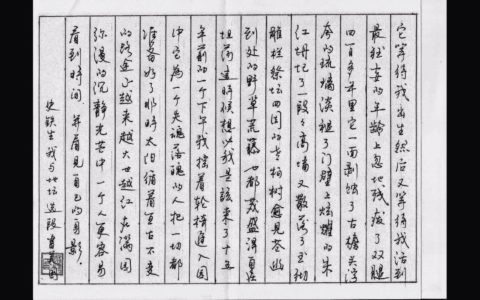 它等待我出生然后又等待我活到
最狂妄的年龄上忽地残废了双腿
四百多年里它一面剥蚀了古檐头浮
夸的琉璃淡褪了门壁上炫耀的朱
红坍圮了一段々高墙又散落了玉砌
雕栏祭坛四周的老柏树愈见苍幽
到处的野草荒藤也都茂盛得自在
坦荡这时候想必我是该来了十五
年前的一个下午我摇着轮椅进入园
中它为一个失魂落魄的人把一切都
准备好了那时太阳循着亘古不变
的路途正越来越大也越红在满园
弥漫的沉静光芒中一个人更容易
看到时间并看见自己的身影.
史铁生我与地坛选段